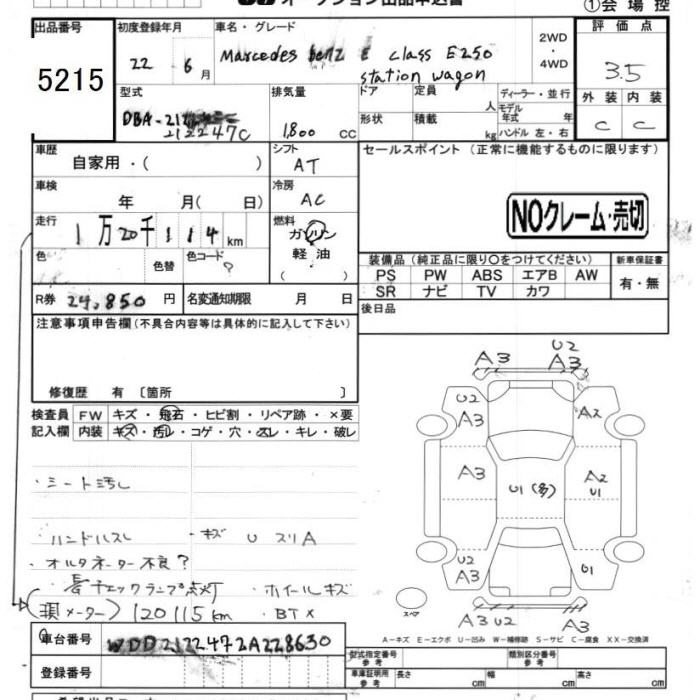 オークション出品申込書
①会場控
出品番号
5215
初度登録年月
22 6月
車名・グレード
Marcedes benz E class E250
station wagon
2WD
・
4WD
評価点
3.5
外装 内装
C C
型式
DBA-
212247C
排気量
1,800 cc
ドア
形状
定員 人
積載 kg
ディーラー・並行
モデル年式 年
ハンドル 左・右
車歴
自家用・( )
シフト
AT
セールスポイント (正常に機能するものに限ります)
車検
年 月( 日)
冷房
AC
NOクレーム・売切
走行
1万20千114km
燃料
ガソリン
(軽油)
色
色替
色コード
?
装備品(純正品に限り○をつけてください)
新車保証書
PS PW ABS エアB AW
SR ナビ TV カワ
有・無
R券 24,850円
名変通知期限 月 日
後日品
注意事項申告欄(不具合内容等は具体的に記入して下さい)
修復歴 有 〔箇所 〕
検査員
記入欄
FW キズ・飛石・ヒビ割・リペア跡・×要
内装 キズ・汚レ・コゲ・穴・スレ・キレ・破レ
・シート汚し
ハンドルスレ ・キズ U スリA
・オルタネーター不良?
チェックランプ点灯 ・ホイールキズ
(現メーター) 120115km ・BT×
A3 U2
A3
U2
A3
A2
A3
U1(多)
A2
U1
U2
A3
U1
A3 U2 A3
スペア
A-キズ E-エクボ U-凹み W-補修跡 S-サビ C-腐食 XX-交換済
車台番号 WDD2122472A228630
登録番号
型式指定番号
参考
類別区分番号
参考
車庫証明用
参考
長さ cm
幅 cm
高さ cm